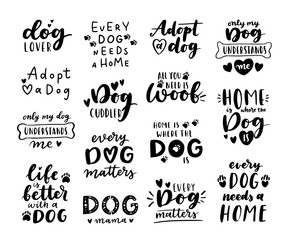 dog
LOVER
EVERY
DOG
NEEDS
A HOME
Adopt
a dog
only my
Dog
UNDERSTANDS
me
Adopt
a Dog
Dog
CUDDLER
ALL YOU
NEED IS
Woof
HOME
IS
where the
Dog
IS
only my dog
UNDERSTANDS
me
every
DOG
matters
HOME IS
WHERE THE
DOG
IS
life
is
better
with a
DOG
DOG
mama
EVERY
Dog
matters
every
DOG
needs a
HOME